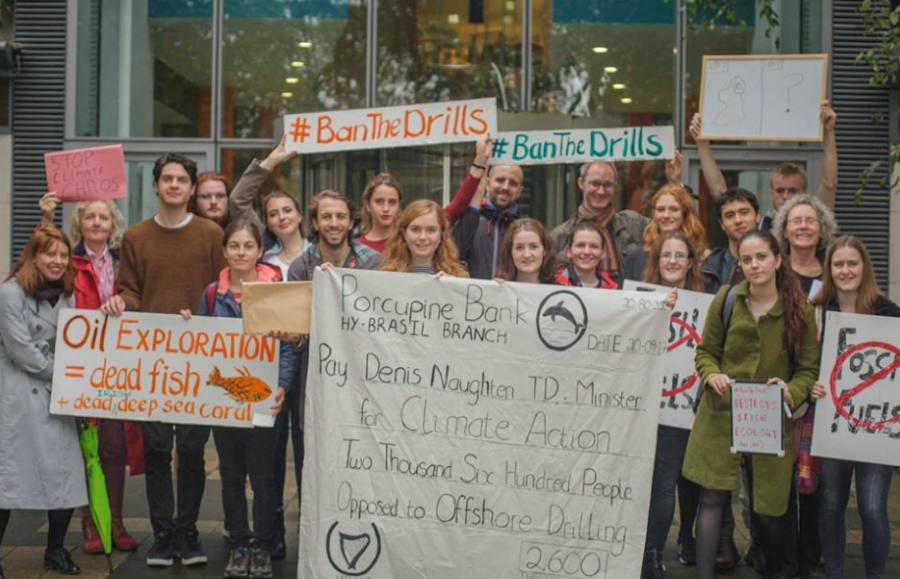 #BanTheDrills
#BanTheDrills
STOP
CLIMATE
CHAOS
Oil EXPLORATION
= dead fish
IRISH
+ dead deep sea coral
Porcupine Bank
HY-BRASIL BRANCH
DATE
Pay Denis Naughten TD, Minister
for Climate Action
Two Thousand Six Hundred People
Opposed to Offshore Drilling
2,600
DESTROYS
IRISH
ECOLOGY
FUELS